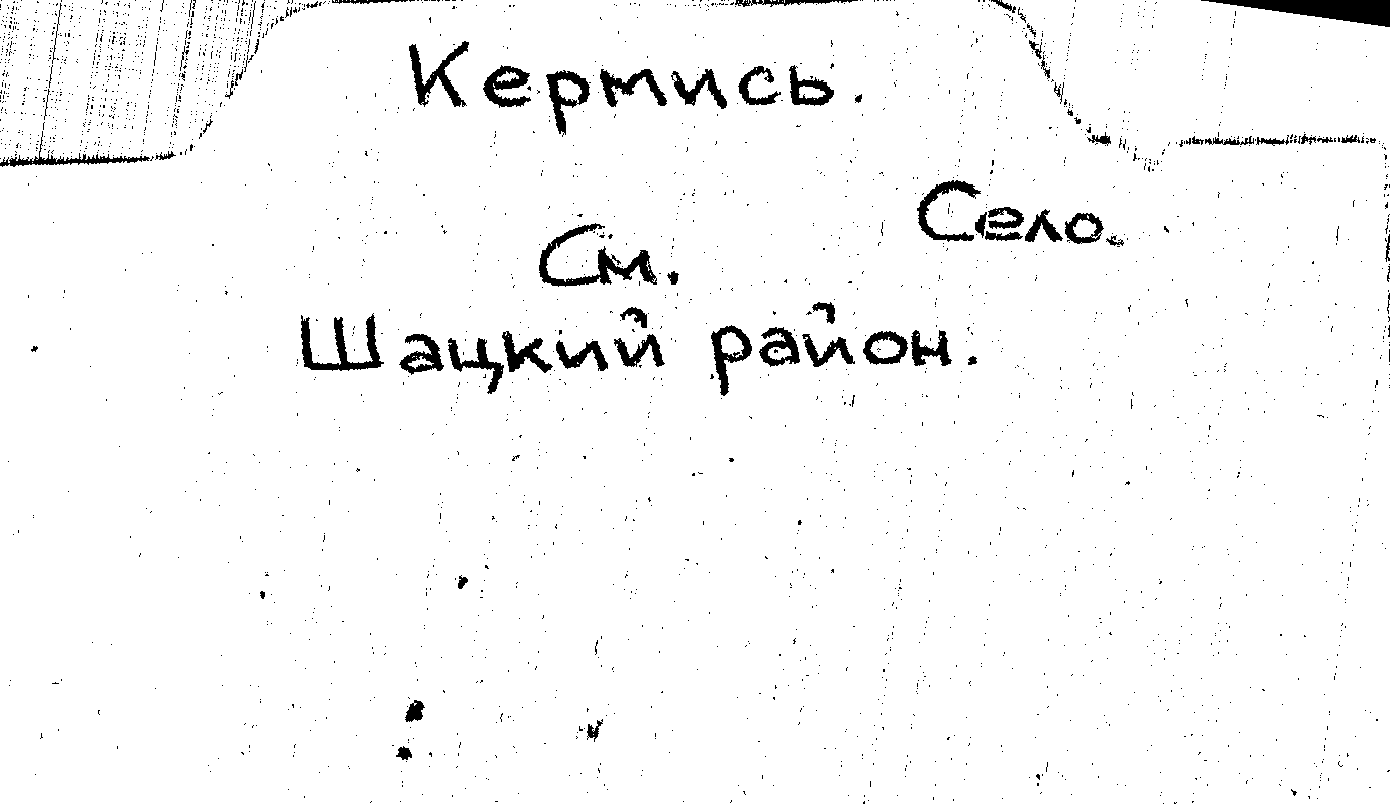 Кермись.
Село.
См.
Шацкий район.